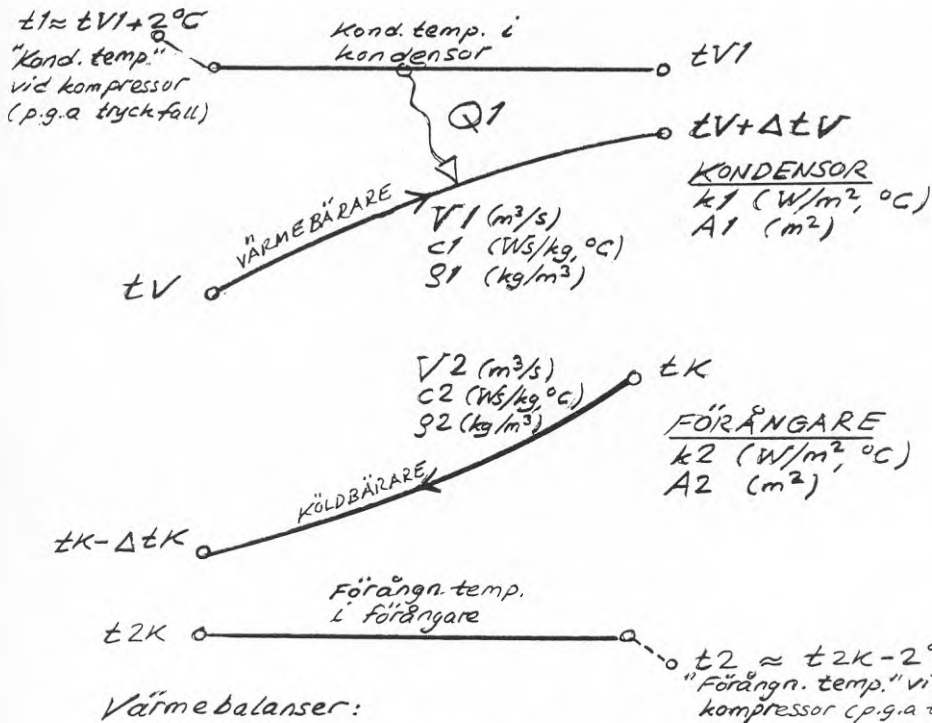 t1 ≈ tV1 + 2 °C
"Kond. temp."
vid kompressor
(p.g.a tryckfall)
Kond. temp. i
kondensor
tV1
Q1
tV + ΔtV
KONDENSOR
k1 (W/m², °C)
A1 (m²)
VÄRMEBÄRARE
V1 (m³/s)
c1 (Ws/kg, °C)
ρ1 (kg/m³)
tV
V2 (m³/s)
c2 (Ws/kg, °C)
ρ2 (kg/m³)
tK
FÖRÅNGARE
k2 (W/m², °C)
A2 (m²)
KÖLDBÄRARE
tK - ΔtK
Förångn. temp.
i förångare
t2K
t2 ≈ t2K - 2°
"Förångn. temp." vi
kompressor (p.g.a t
Värmebalanser: